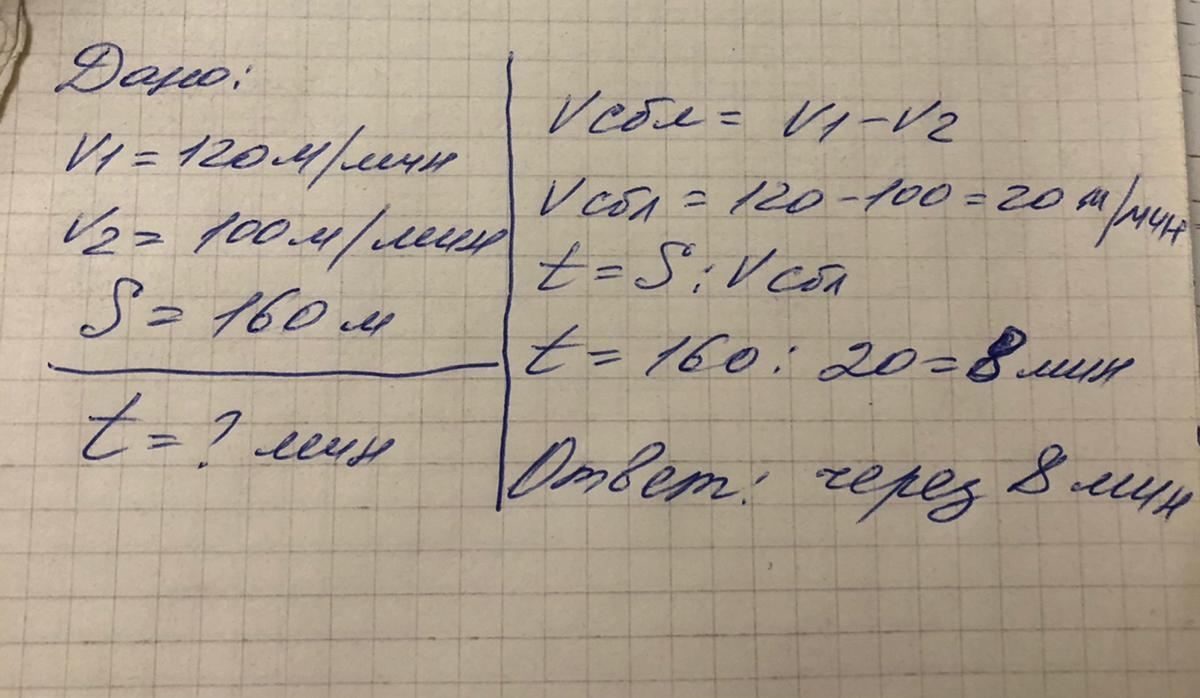 Дано:
V1 = 120 м/мин
V2 = 100 м/мин
S = 160 м
t = ? мин
Vсбл = V1 - V2
Vсбл = 120 - 100 = 20 м/мин
t = S : Vсбл
t = 160 : 20 = 8 мин
Ответ: через 8 мин